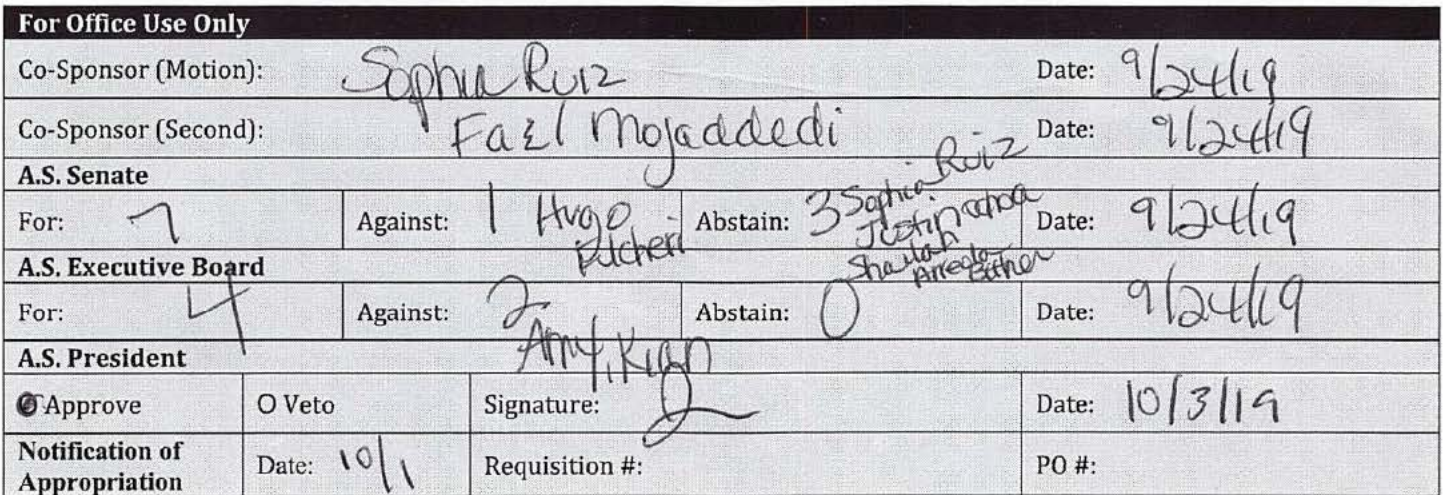 For Office Use Only
Co-Sponsor (Motion): Sophia Ruiz Date: 9/24/19
Co-Sponsor (Second): Fazl Mojaddedi Date: 9/24/19
A.S. Senate
For: 7 Against: 1 Hugo Abstain: 3 Sophia Ruiz Justin Shailah Date: 9/24/19
A.S. Executive Board
For: 4 Against: 2 Amy, Kian Abstain: 0 Date: 9/24/19
A.S. President
Approve O Veto Signature: Date: 10/3/19
Notification of Appropriation Date: 10/1 Requisition #: PO #: